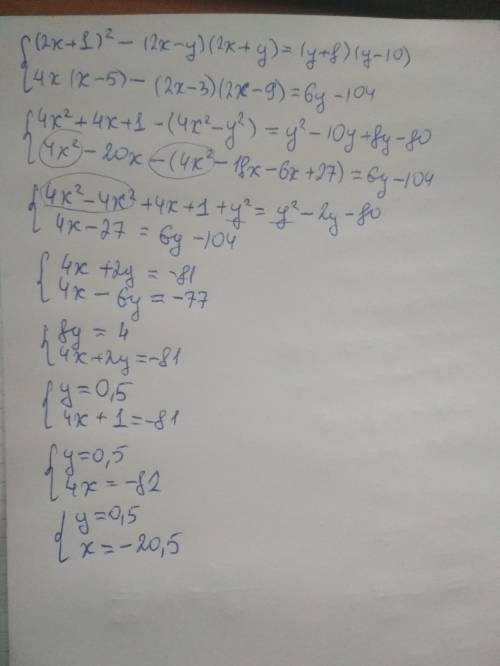 (2x+1)² - (2x-y)(2x+y) = (y+8)(y-10)
4x(x-5) - (2x-3)(2x-9) = 6y-104
4x²+4x+1-(4x²-y²) = y²-10y+8y-80
4x²-20x-(4x²-18x-6x+27) = 6y-104
4x²-4x²+4x+1+y² = y²-2y-80
4x-27 = 6y-104
4x+2y = -81
4x-6y = -77
8y = 4
4x+2y = -81
y = 0,5
4x+1 = -81
y = 0,5
4x = -82
y = 0,5
x = -20,5